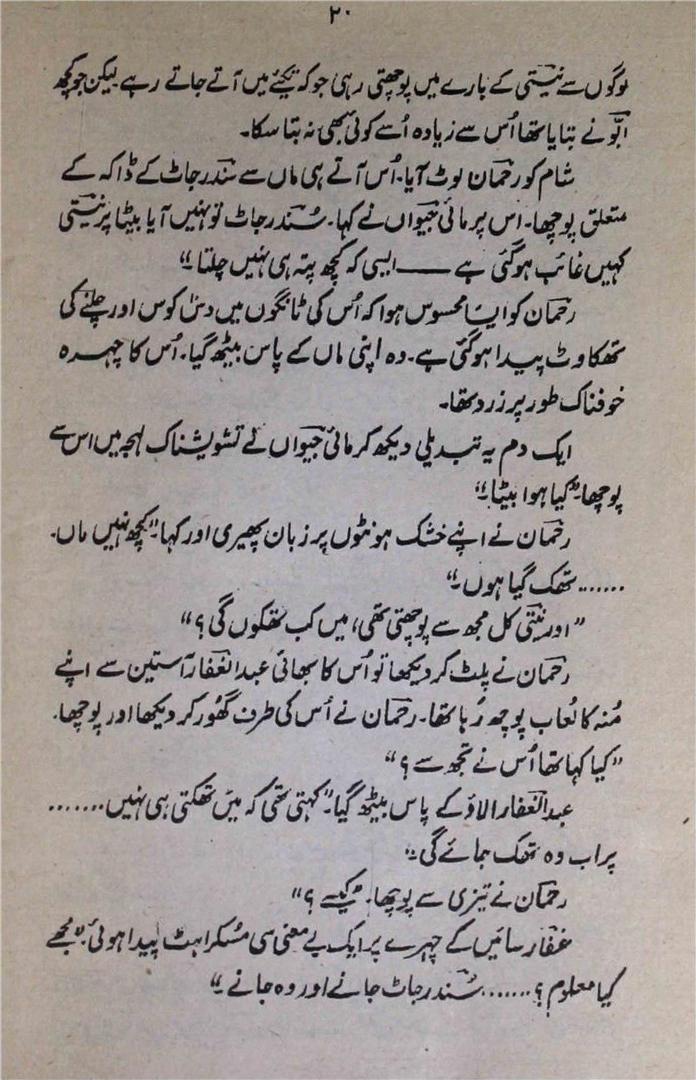 ۲۰
لوگوں سے نیتی کے بارے میں پوچھتی رہی جو کہ تکیئے میں آتے جاتے رہے لیکن جو کچھ
ابّو نے بتایا تھا اُس سے زیادہ اُسے کوئی بھی نہ بتا سکا۔
شام کو رحمان لوٹ آیا۔ اُس آتے ہی ماں سے سُندر جاٹ کے ڈاکہ کے
متعلق پوچھا۔ اس پر مائی جیواں نے کہا۔ سُندر جاٹ تو نہیں آیا بیٹا پر نیستی
کہیں غائب ہوگئی ہے ——— ایسی کہ کچھ پتہ ہی نہیں چلتا“
رحمان کو ایسا محسوس ہوا کہ اُس کی ٹانگوں میں دس کوس اور چلنے کی
تھکاوٹ پیدا ہوگئی ہے۔ وہ اپنی ماں کے پاس بیٹھ گیا۔ اُس کا چہرہ
خوفناک طور پر زرد تھا۔
ایک دم یہ تبدیلی دیکھ کر مائی جیواں نے تشویشناک لہجہ میں اس سے
پوچھا۔ ”کیا ہوا بیٹا۔“
رحمان نے اپنے خشک ہونٹوں پر زبان پھیری اور کہا۔ ”کچھ نہیں ماں۔
...... تھک گیا ہوں۔“
”اور نیتی کل مجھ سے پوچھتی تھی، میں کب تھکوں گی؟“
رحمان نے پلٹ کر دیکھا تو اُس کا بھائی عبدالغفار آستین سے اپنے
مُنہ کا لُعاب پوچھ رہا تھا۔ رحمان نے اُس کی طرف گھُور کر دیکھا اور پوچھا۔
”کیا کہا تھا اُس نے تجھ سے؟“
عبدالغفار الاؤ کے پاس بیٹھ گیا۔ ”کہتی تھی کہ میں تھکتی ہی نہیں .......
پر اب وہ تھک جائے گی۔“
رحمان نے تیزی سے پوچھا۔ ”کیسے؟“
غفار سائیں کے چہرے پر ایک بے معنی سی مسکراہٹ پیدا ہوئی۔ ”مجھے
کیا معلوم؟ ....... سُندر جاٹ جانے اور وہ جانے۔“